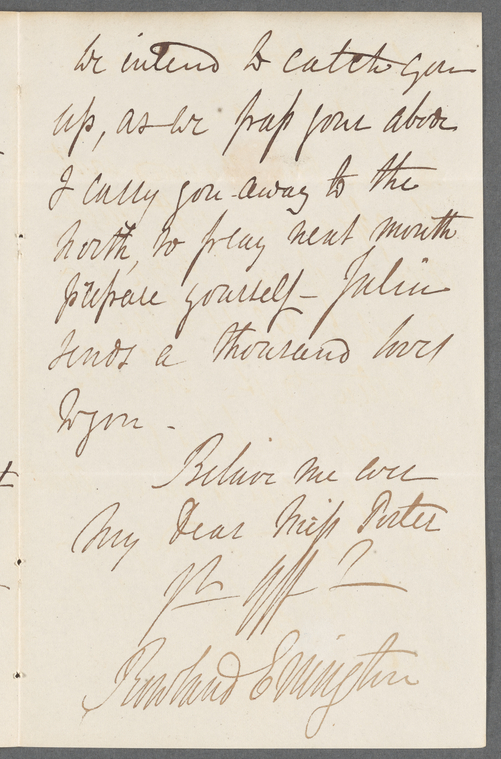 We intend to catch you
up, as we pass your abode
& carry you away to the
North, so pray next month
prepare yourself – Julia
sends a thousand loves
to you –
Believe me ever
My Dear Miss Porter
Yrs Aff
Rowland Errington